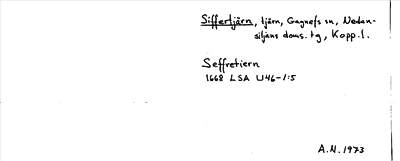 Siffertjärn, tjärn, Gagnefs sn, Nedan-
siljans doms. tg, Kopp. l.
Seffretiern
1668 LSA U46-1:5
A.N. 1973